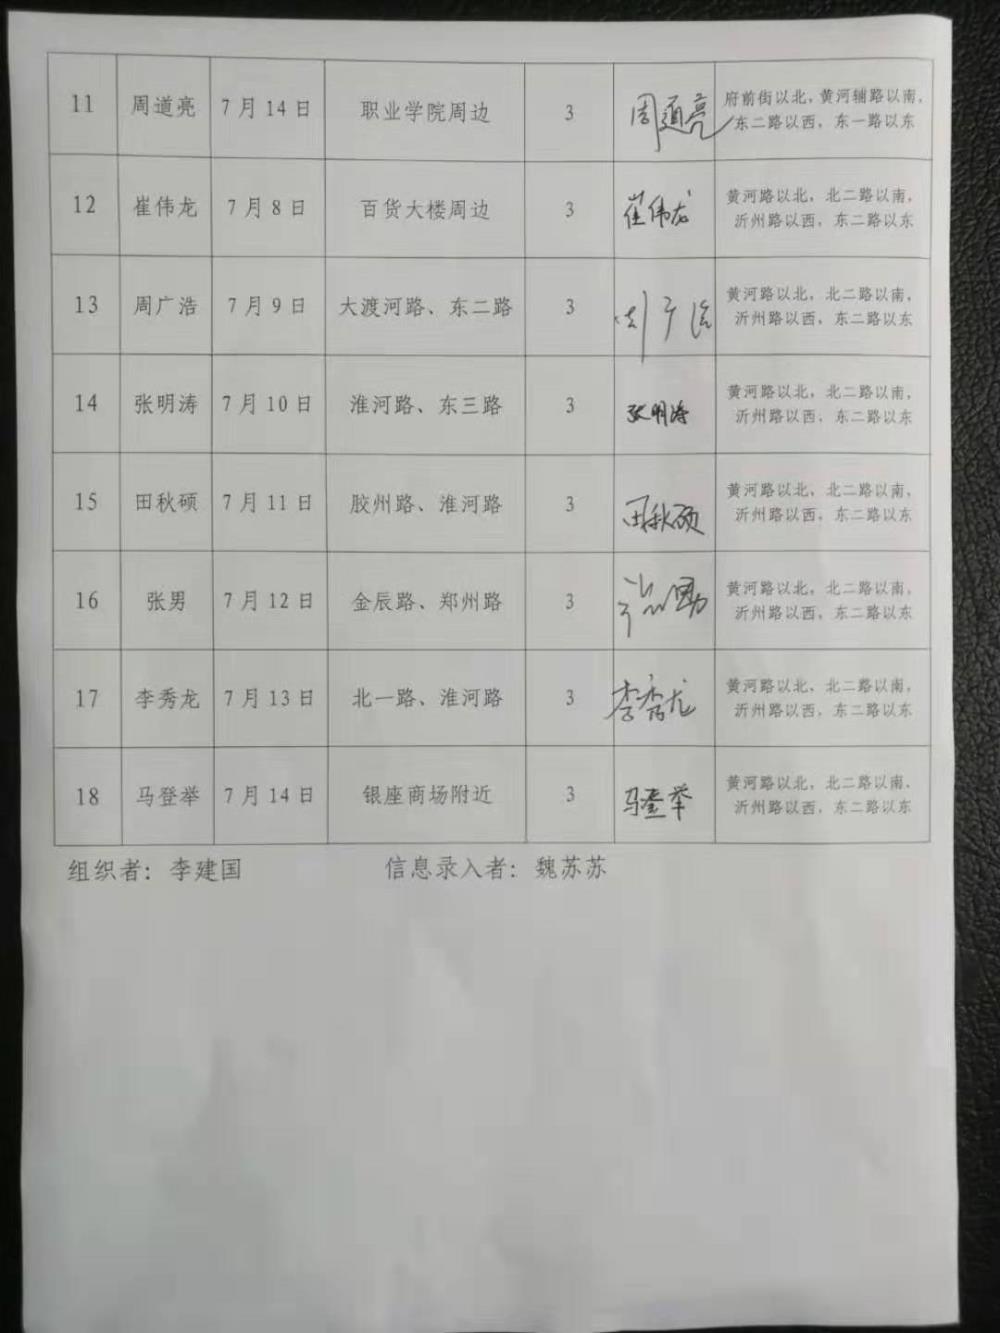 11 周道亮 7月14日 职业学院周边 3 周道亮 府前街以北，黄河辅路以南，
东二路以西，东一路以东
12 崔伟龙 7月8日 百货大楼周边 3 崔伟龙 黄河路以北，北二路以南，
沂州路以西，东二路以东
13 周广浩 7月9日 大渡河路、东二路 3 周广浩 黄河路以北，北二路以南，
沂州路以西，东二路以东
14 张明涛 7月10日 淮河路、东三路 3 张明涛 黄河路以北，北二路以南，
沂州路以西，东二路以东
15 田秋硕 7月11日 胶州路、淮河路 3 田秋硕 黄河路以北，北二路以南，
沂州路以西，东二路以东
16 张男 7月12日 金辰路、郑州路 3 张男 黄河路以北，北二路以南，
沂州路以西，东二路以东
17 李秀龙 7月13日 北一路、淮河路 3 李秀龙 黄河路以北，北二路以南，
沂州路以西，东二路以东
18 马登举 7月14日 银座商场附近 3 马登举 黄河路以北，北二路以南，
沂州路以西，东二路以东
组织者：李建国 信息录入者：魏苏苏